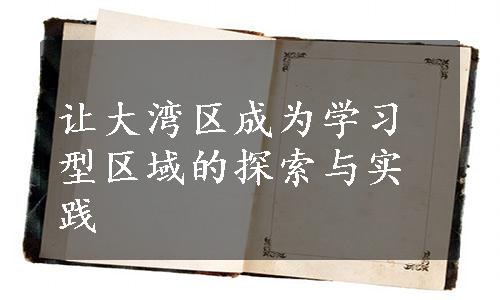 让大湾区成为学习
型区域的探索与实
践